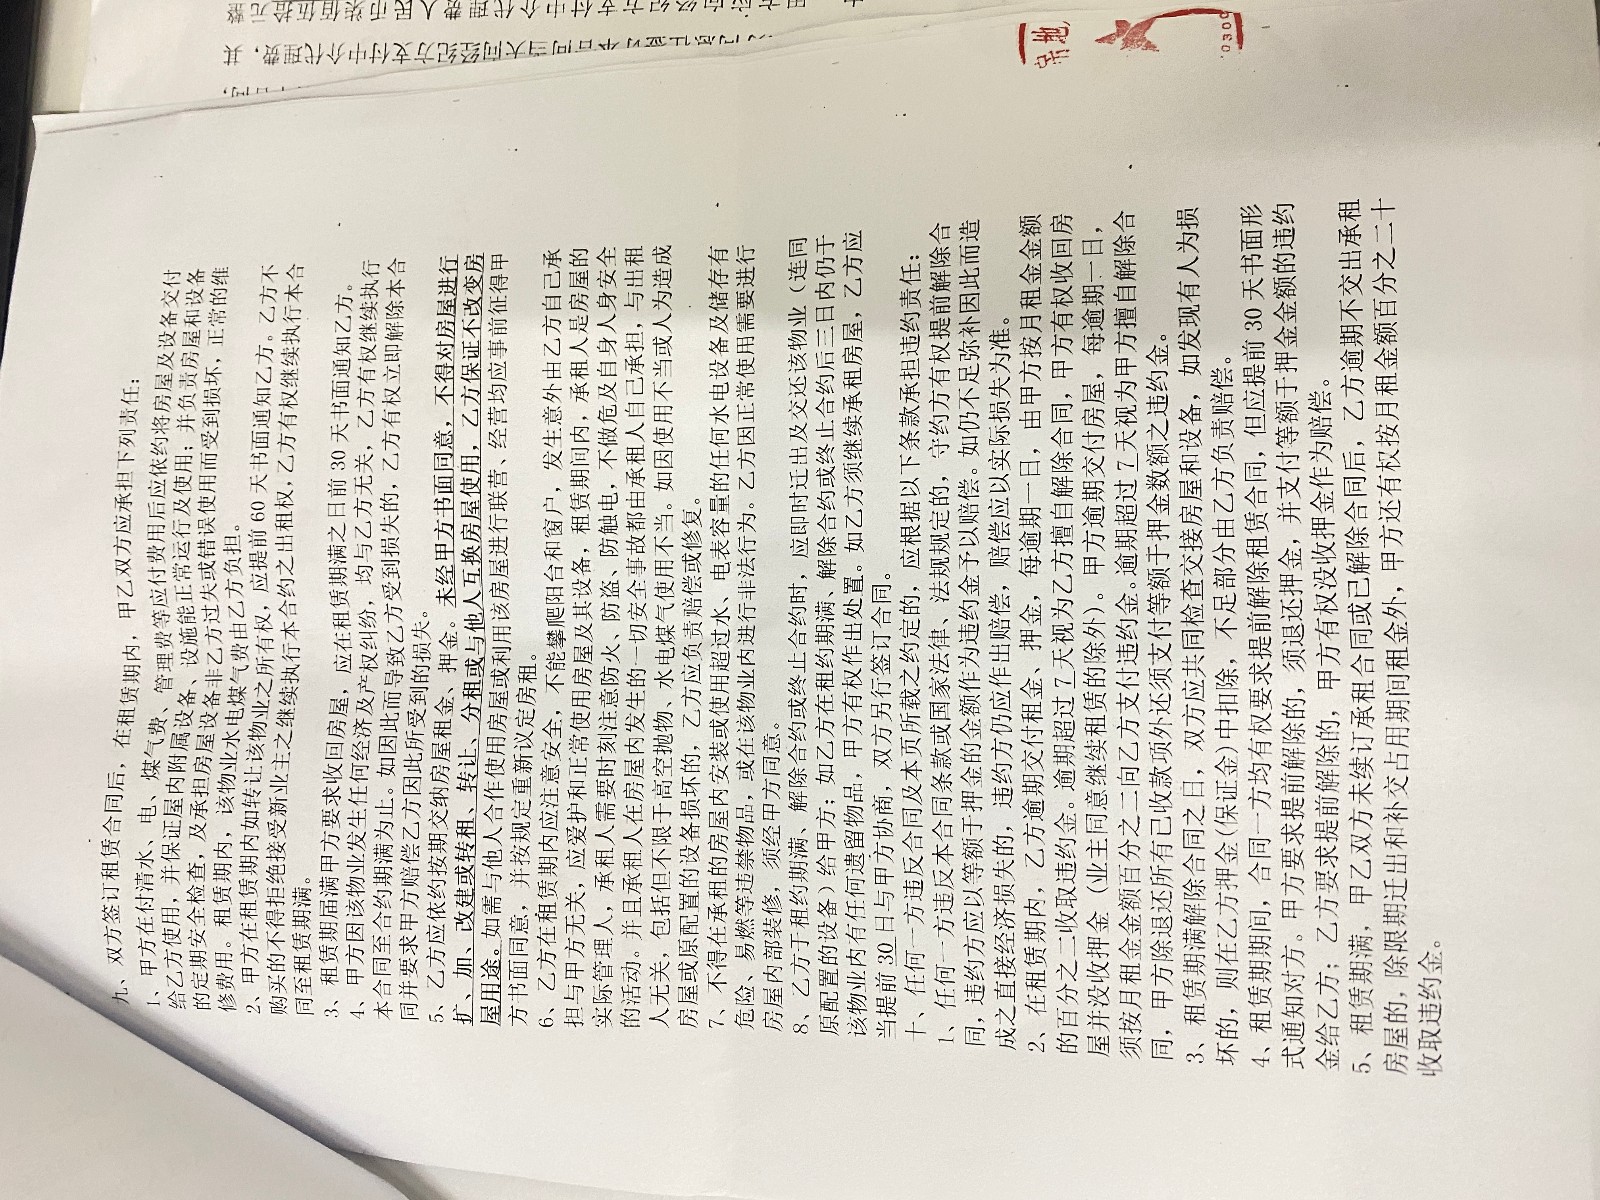 九、双方签订租赁合同后，在租赁期内，甲乙双方应承担下列责任：
1、甲方在付清水、电、煤气费、管理费等应付费用后应依约将房屋及设备交付
给乙方使用，并保证屋内附属设备、设施能正常运行及使用；并负责房屋和设备
的定期安全检查，及承担房屋设备非乙方过失或错误使用而受到损坏，正常的维
修费用。租赁期内，该物业水电煤气费由乙方负担。
2、甲方在租赁期内如转让该物业之所有权，应提前 60 天书面通知乙方。乙方不
购买的不得拒绝接受新业主之继续执行本合约之出租权，乙方有权继续执行本合
同至租赁期满。
3、租赁期届满甲方要求收回房屋，应在租赁期满之日前 30 天书面通知乙方。
4、甲方因该物业发生任何经济及产权纠纷，均与乙方无关，乙方有权继续执行
本合同至合约期满为止。如因此而导致乙方受到损失的，乙方有权立即解除本合
同并要求甲方赔偿乙方因此所受到的损失。
5、乙方应依约按期交纳房屋租金、押金。未经甲方书面同意，不得对房屋进行
扩、加、改建或转租、转让、分租或与他人互换房屋使用，乙方保证不改变房
屋用途。如需与他人合作使用房屋或利用该房屋进行联营、经营均应事前征得甲
方书面同意，并按规定重新议定房租。
6、乙方在租赁期内应注意安全，不能攀爬阳台和窗户，发生意外由乙方自己承
担与甲方无关，应爱护和正常使用房屋及其设备，租赁期间内，承租人是房屋的
实际管理人，承租人需要时刻注意防火、防盗、防触电，不做危及自身人身安全
的活动。并且承租人在房屋内发生的一切安全事故都由承租人自己承担，与出租
人无关，包括但不限于高空抛物、水电煤气使用不当。如因使用不当或人为造成
房屋或原配置的设备损坏的，乙方应负责赔偿或修复。
7、不得在承租的房屋内安装或使用超过水、电表容量的任何水电设备及储存有
危险、易燃等违禁物品，或在该物业内进行非法行为。乙方因正常使用需要进行
房屋内部装修，须经甲方同意。
8、乙方于租约期满、解除合约或终止合约时，应即时迁出及交还该物业（连同
原配置的设备）给甲方；如乙方在租约期满、解除合约或终止合约后三日内仍于
该物业内有任何遗留物品，甲方有权作出处置。如乙方须继续承租房屋，乙方应
当提前 30 日与甲方协商，双方另行签订合同。
十、任何一方违反合同及本页所载之约定的，应根据以下条款承担违约责任：
1、任何一方违反本合同条款或国家法律、法规规定的，守约方有权提前解除合
同，违约方应以等额于押金的金额作为违约金予以赔偿。如仍不足弥补因此而造
成之直接经济损失的，违约方仍应作出赔偿，赔偿应以实际损失为准。
2、在租赁期内，乙方逾期交付租金、押金，每逾期一日，由甲方按月租金金额
的百分之二收取违约金。逾期超过 7 天视为乙方擅自解除合同，甲方有权收回房
屋并没收押金（业主同意继续租赁的除外）。甲方逾期交付房屋，每逾期一日，
须按月租金金额百分之二向乙方支付违约金。逾期超过 7 天视为甲方擅自解除合
同，甲方除退还所有已收款项外还须支付等额于押金数额之违约金。
3、租赁期满解除合同之日，双方应共同检查交接房屋和设备，如发现有人为损
坏的，则在乙方押金（保证金）中扣除，不足部分由乙方负责赔偿。
4、租赁期期间，合同一方均有权要求提前解除租赁合同，但应提前 30 天书面形
式通知对方。甲方要求提前解除的，须退还押金，并支付等额于押金金额的违约
金给乙方；乙方要求提前解除的，甲方有权没收押金作为赔偿。
5、租赁期满，甲乙双方未续订承租合同或已解除合同后，乙方逾期不交出承租
房屋的，除限期迁出和补交占用期间租金外，甲方还有权按月租金额百分之二十
收取违约金。